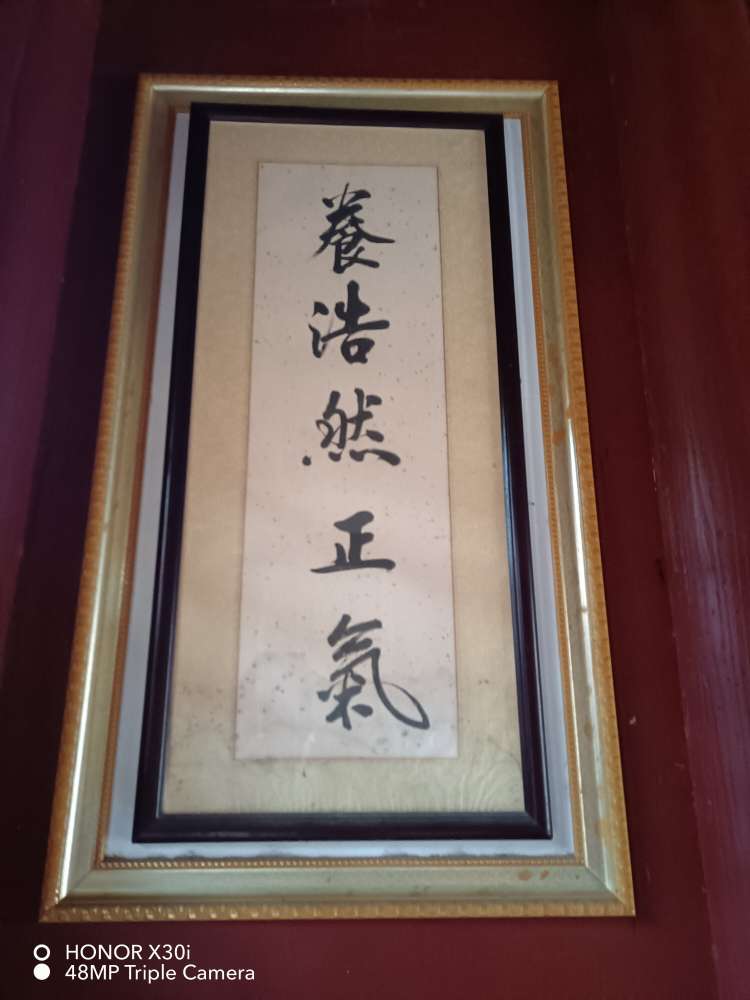 養浩然正氣
HONOR X30i
48MP Triple Camera